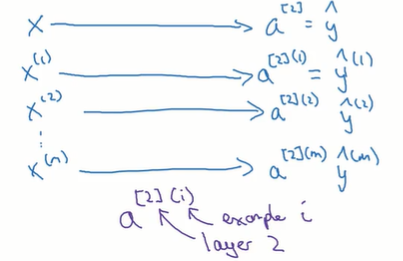 x → a^[2] = ŷ
x^(1) → a^[2](1) = ŷ^(1)
x^(2) → a^[2](2) ŷ^(2)
⋮
x^(m) → a^[2](m) ŷ^(m)
a^[2](i) example i
layer 2